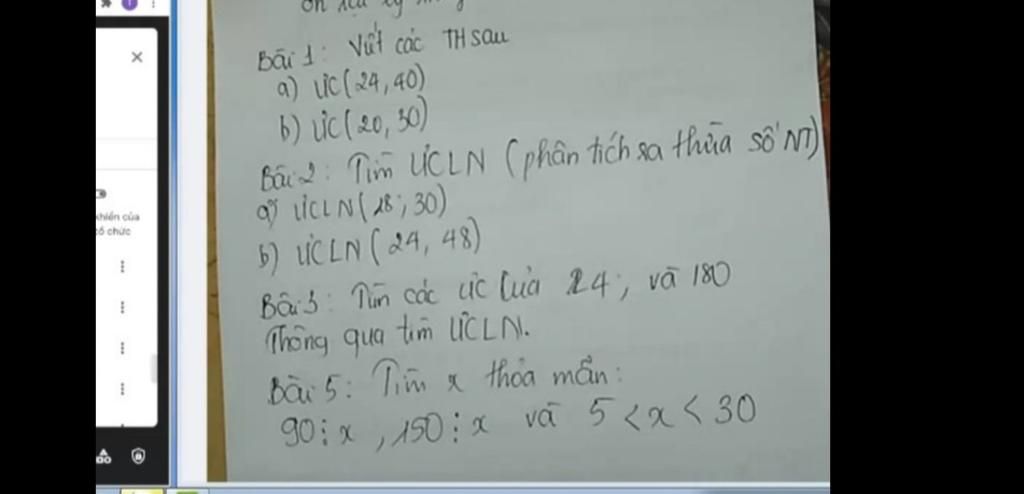 ôn
Bài 1: Viết các TH sau
a) ƯC(24,40)
b) ƯC(20,30)
Bài 2: Tìm ƯCLN (phân tích ra thừa số NT)
a) ƯCLN(28;30)
b) ƯCLN(24, 48)
Bài 3: Tìm các ƯC của 24; và 180
Thông qua tìm ƯCLN.
Bài 5: Tìm x thỏa mãn:
90⋮x , 150⋮x và 5 < x < 30
khiển của
tổ chức